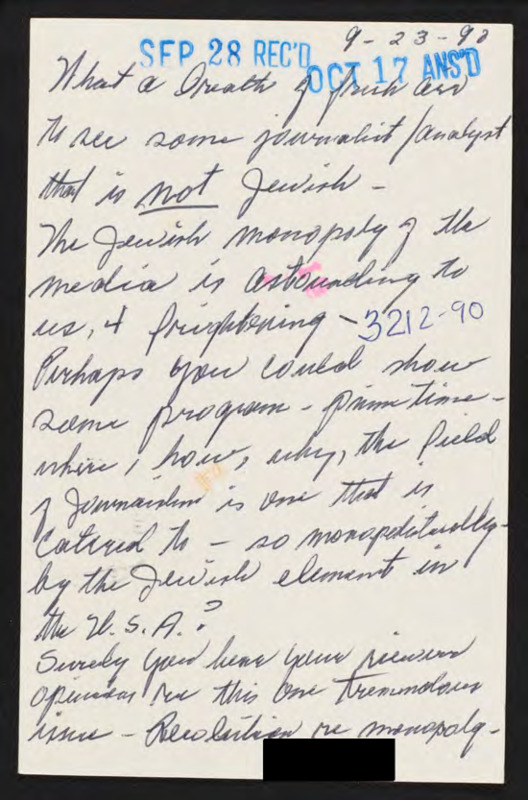 9-23-90
SEP 28 REC'D
OCT 17 ANS'D
What a breath of fresh air
to see some journalist/analyst
that is not Jewish -
The Jewish monopoly of the
media is astounding to
us, & frightening -
3212-90
Perhaps you could show
some program - prime time -
where, how, why, the field
of journalism is one that is
catered to - so monopolistically -
by the Jewish element in
the U.S.A.?
Surely you have your viewers
opinions re this one tremendous
issue - re monopoly -